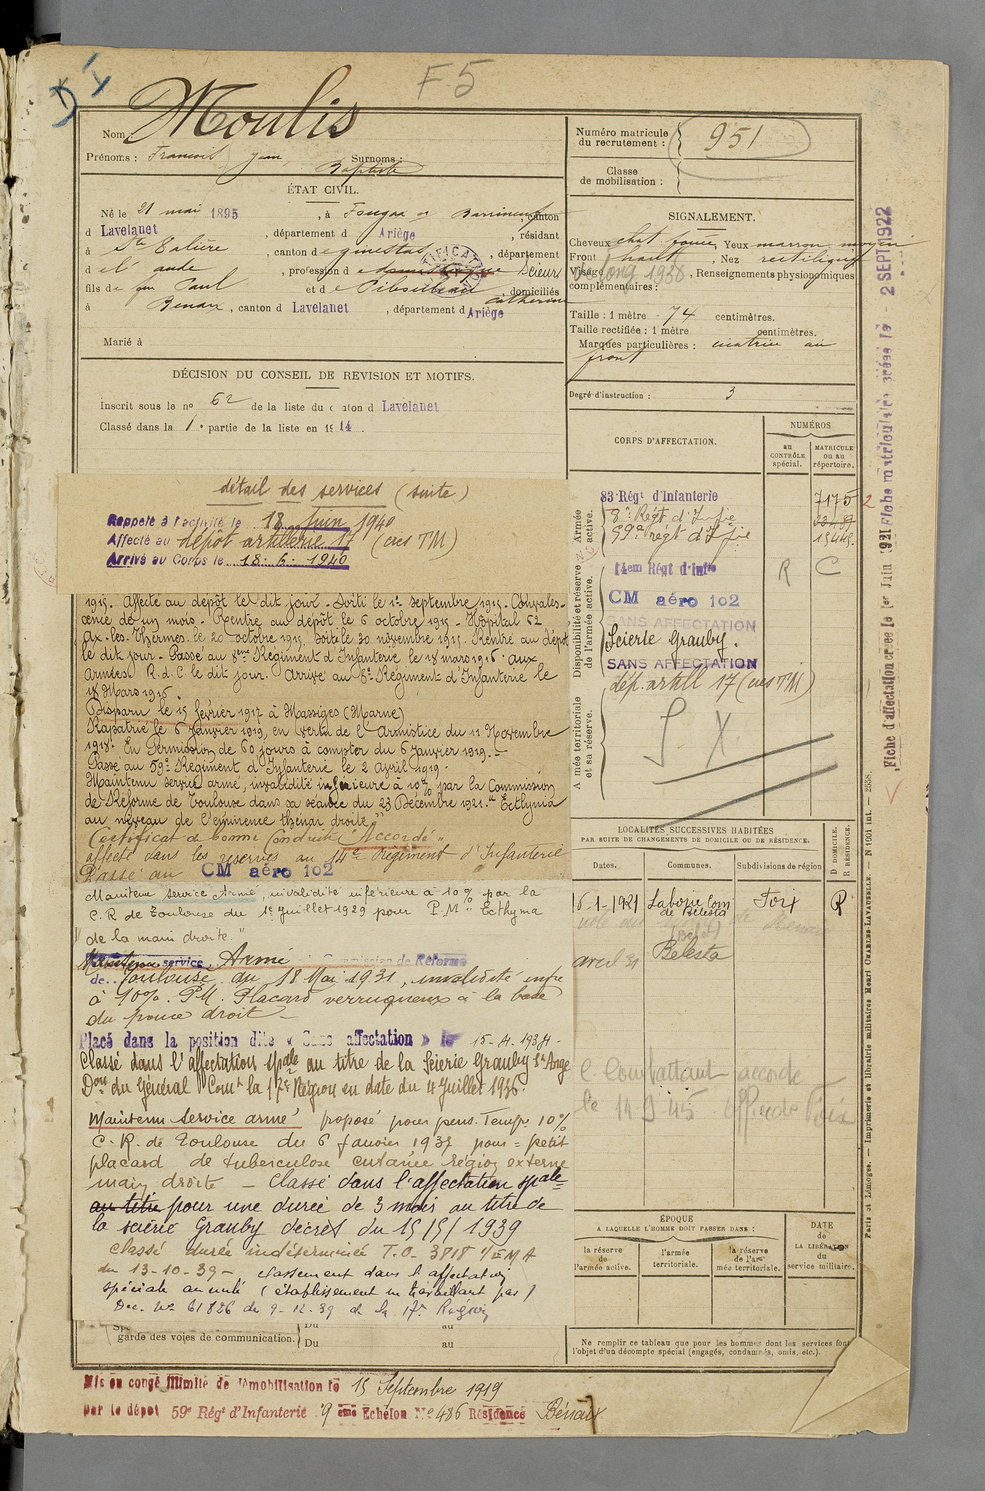 F5
Nom Moulis
Prénoms : François Jean Surnoms :
Baptiste
ÉTAT CIVIL.
Né le 21 mai 1895, à Fougax et Barrineuf, canton
d Lavelanet, département d Ariège, résidant
à Ste Valière, canton de ginestas, département
d el aude, profession d Scieur
fils de feu Paul et d e, domiciliés
Catherine
à Benaix, canton d Lavelanet, département d Ariège
Marié à
DÉCISION DU CONSEIL DE REVISION ET MOTIFS.
Inscrit sous le no 62 de la liste du canton d Lavelanet
Classé dans la 1e partie de la liste en 1914.
détail des services (suite)
Rappelé à l'activité le 18 Juin 1940
Affecté au dépôt artillerie 17 (ces TM)
Arrivé au Corps le 18.6.1940
1915. Affecté au dépôt le dit jour. Sorti le 1er septembre 1915. Convales-
cence de un mois. Rentré au dépôt le 6 octobre 1915. Hôpital 62
Ax-les-Thermes le 20 octobre 1915. Sorti le 30 novembre 1915. Rentré au dépôt
le dit jour. Passé au 8ème Régiment d'Infanterie le 18 mars 1916. aux
Armées R.d.C. le dit jour. Arrivé au 8e Régiment d'Infanterie le
18 Mars 1916.
Disparu le 15 février 1917 à Massiges (Marne)
Rapatrié le 6 Janvier 1919, en vertu de l'Armistice du 11 Novembre
1918. En Permission de 60 jours à compter du 6 Janvier 1919.
Passé au 59e Régiment d'Infanterie le 2 avril 1919.
Maintenu service armé, invalidité inférieure à 10% par la Commission
de Réforme de Toulouse dans sa séance du 23 Décembre 1921. "Ecthyma
au niveau de l'éminence thenar droite"
Certificat de bonne Conduite "Accordé"
affecté dans les réserves au 14e Régiment d'Infanterie
Passé au CM aéro 102
Maintenu Service Armé, invalidité inférieure à 10% par la
C.R de Toulouse du 1er Juillet 1929 pour P.M "Ecthyma
de la main droite"
Maintenu service Armé Commission de Réforme
de Toulouse du 18 Mai 1931, invalidité infre
à 10%. PM. Placard verruqueux à la base
du pouce droit
Placé dans la position dite « Sans affectation » le 15-4-1934
Classé dans l'affectation spale au titre de la Scierie Grauby St Ange
Don du Général Comt la 17e Région en date du 4 Juillet 1936.
Maintenu service armé proposé pour pens. Temp. 10%
C.R. de Toulouse du 6 Janvier 1937 pour = petit
placard de tuberculose cutanée région externe
main droite - Classé dans l'affectation spale
au titre pour une durée de 3 mois au titre de
la scierie Grauby décret du 15/5/1939
Classé durée indéterminée T.O. 3718 1/EMA
du 13-10-39 - classement dans l'affectation
spéciale annulé (établissement ne travaillant pas)
Dec. No 61826 du 9-12-39 de la 17e Région
garde des voies de communication. Du au
Du au
Mis en congé illimité de démobilisation le 15 Septembre 1919
par le dépôt 59e Régt d'Infanterie 9 ème Echelon No 486 Résidence Bénaix
Numéro matricule
du recrutement : 951
Classe
de mobilisation :
SIGNALEMENT.
Cheveux chat foncé, Yeux marron moyen
Front haut, Nez rectiligne
Visage long 1938, Renseignements physionomiques
complémentaires :
Taille : 1 mètre 74 centimètres.
Taille rectifiée : 1 mètre centimètres.
Marques particulières : cicatrice au
front
Degré d'instruction : 3
CORPS D'AFFECTATION.
NUMÉROS
au CONTRÔLE spécial.
MATRICULE ou au répertoire.
Armée active.
83 Régt d'Infanterie 7175
8e Régt d'Infie
59e régt d'Infie
Disponibilité et réserve de l'armée active.
14em Régt d'Infie R C
CM aéro 102
SANS AFFECTATION
Scierie Grauby.
SANS AFFECTATION
dép. artill 17 (ces TM)
Armée territoriale et sa réserve.
S. X.
LOCALITÉS SUCCESSIVES HABITÉES
PAR SUITE DE CHANGEMENTS DE DOMICILE OU DE RÉSIDENCE.
Dates. Communes. Subdivisions de région
D DOMICILE. R RÉSIDENCE.
16-1-1921 Laborie Com de Bélesta Foix R
avril 31 Bélesta
C. Combattant accordé
le 14-9-45 Foix
ÉPOQUE
A LAQUELLE L'HOMME DOIT PASSER DANS :
la réserve de l'armée active.
l'armée territoriale.
la réserve de l'armée territoriale.
DATE de LA LIBÉRATION du service militaire.
Ne remplir ce tableau que pour les hommes dont les services font
l'objet d'un décompte spécial (engagés, condamnés, omis, etc.).
Fiche d'affectation créée le 1er Juin 1921 Fiche matriculaire créée le - 2 SEPT 1922
Paris et Limoges. — Imprimerie et librairie militaires Henri CHARLES-LAVAUZELLE. — N 1001 int. — 2558.